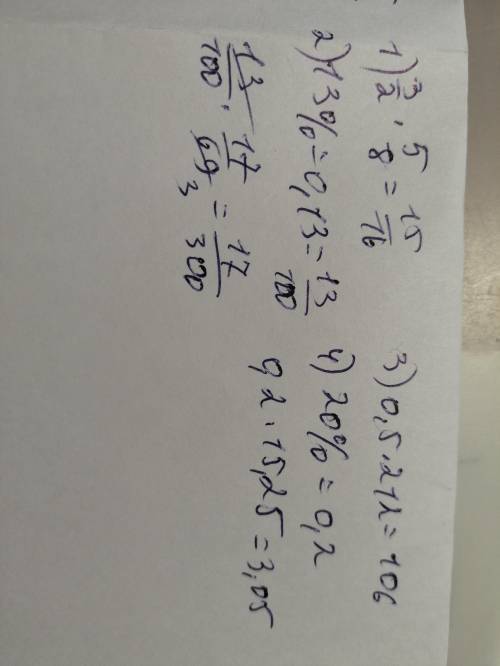 1) 3/2 · 5/8 = 15/16
2) 13% = 0,13 = 13/100
13/100 · 17/3 = 17/300
3) 0,5 · 212 = 106
4) 20% = 0,2
0,2 · 15,25 = 3,05